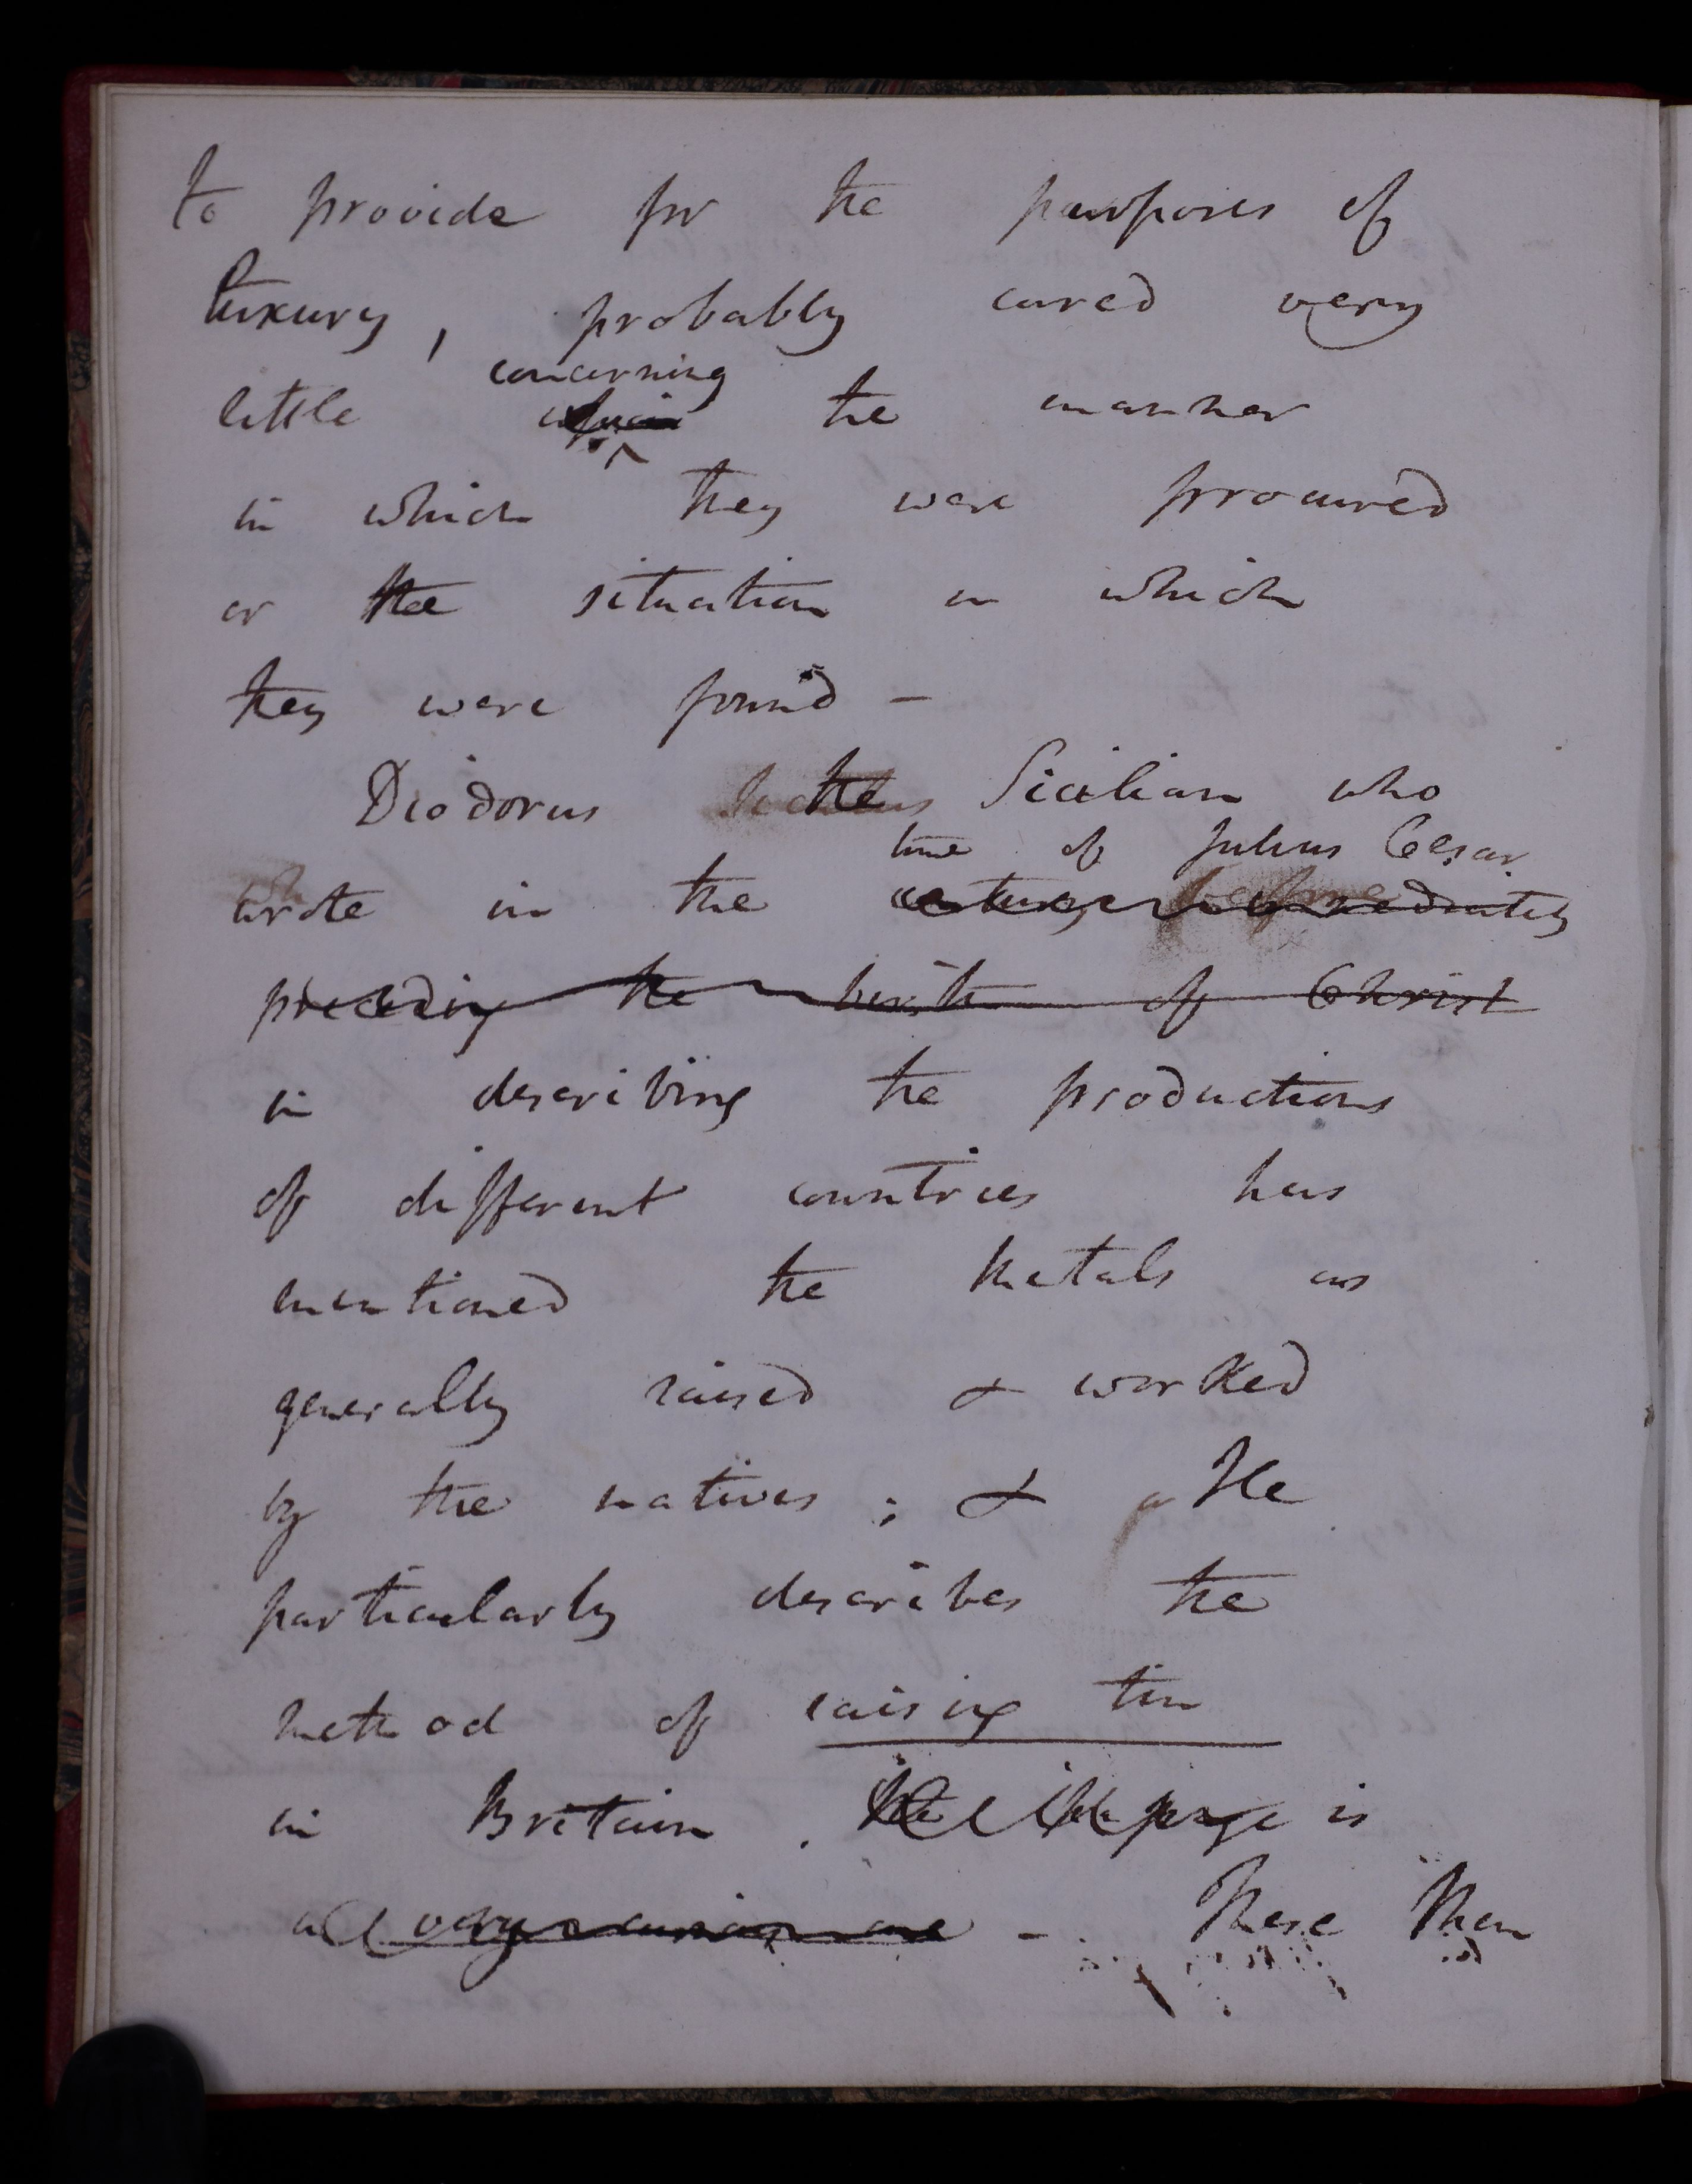 to provide for the purposes of
luxury, probably cared very
concerning
little the manner
in which they were procured
or the situation in which
they were found –
Diodorus the Sicilian who
time of Julius Cesar
wrote in the century immediately
preceding the birth of Christ
in describing the productions
of different countries has
mentioned the Metals as
generally raised & worked
by the natives ; & He
particularly describes the
method of raising tin
in Britain . The passage is
a very curious one – These Men